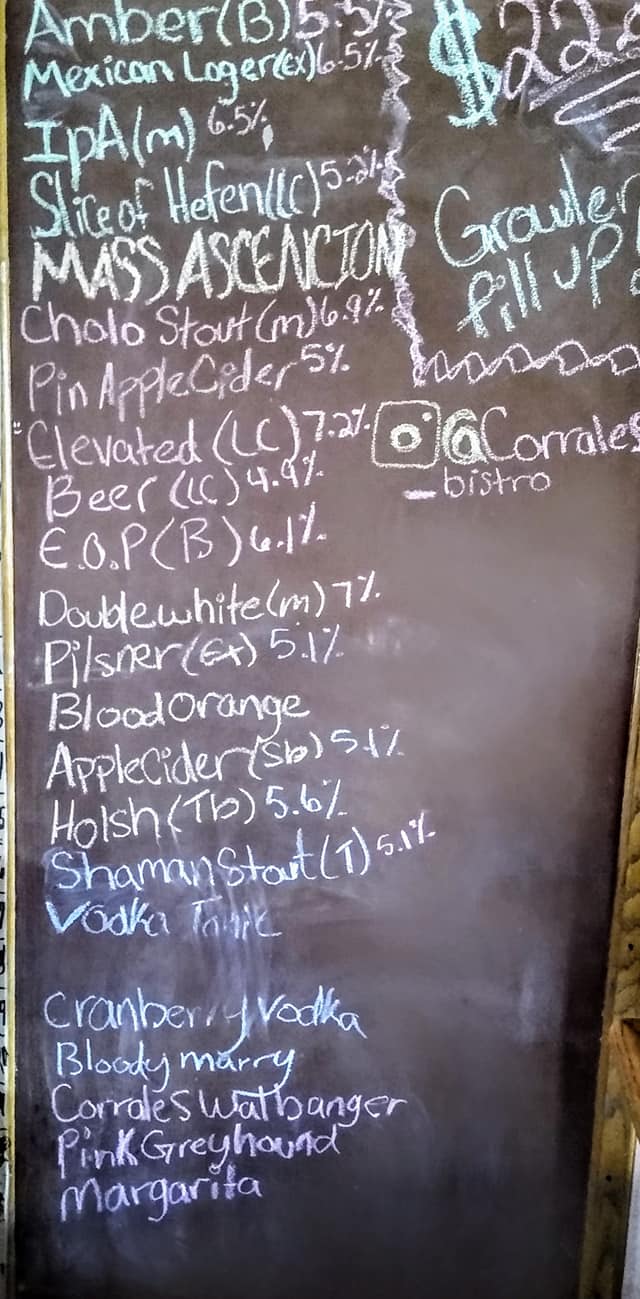 Amber(B) 5.5%
Mexican Lager(Ex) 6.5%
IpA(m) 6.5%
Slice of Hefen(LC) 5.2%
MASS ASCENCION
Cholo Stout(m) 6.9%
Pin Apple Cider 5%
Elevated (LC) 7.2%
Beer (LC) 4.9%
E.O.P(B) 6.1%
Doublewhite(m) 7%
Pilsner(Ex) 5.1%
Blood Orange
Apple Cider(Sb) 5.1%
Holsh(Tb) 5.6%
Shaman Stout(T) 5.1%
Vodka Tonic
Cranberry Vodka
Bloody marry
Corrales Wallbanger
Pink Greyhound
Margarita
$22
Growler
fill up
@Corrales
_bistro